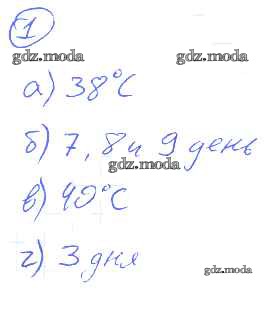 1
gdz.moda gdz.moda
а) 38°С
б) 7, 8 и 9 день
gdz.moda
в) 40°С
г) 3 дня
gdz.moda